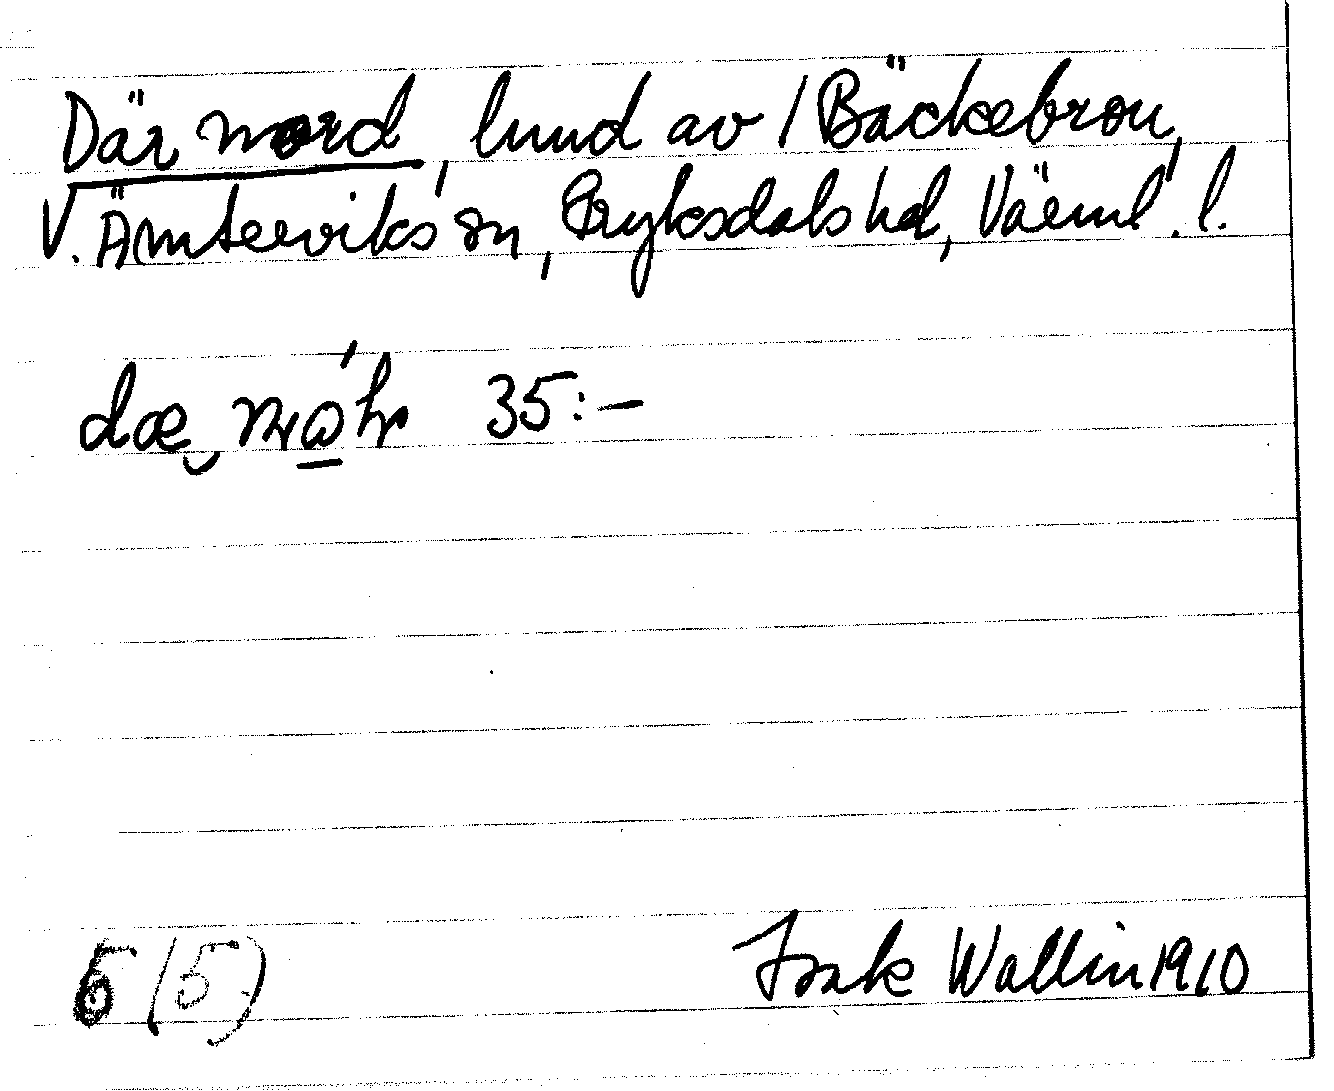 Där nord, lund av / Bäckebron,
V. Ämterviks sn, Fryksdals hd, Värml. l.
35:-
6 (5)
Isak Wallin 1910